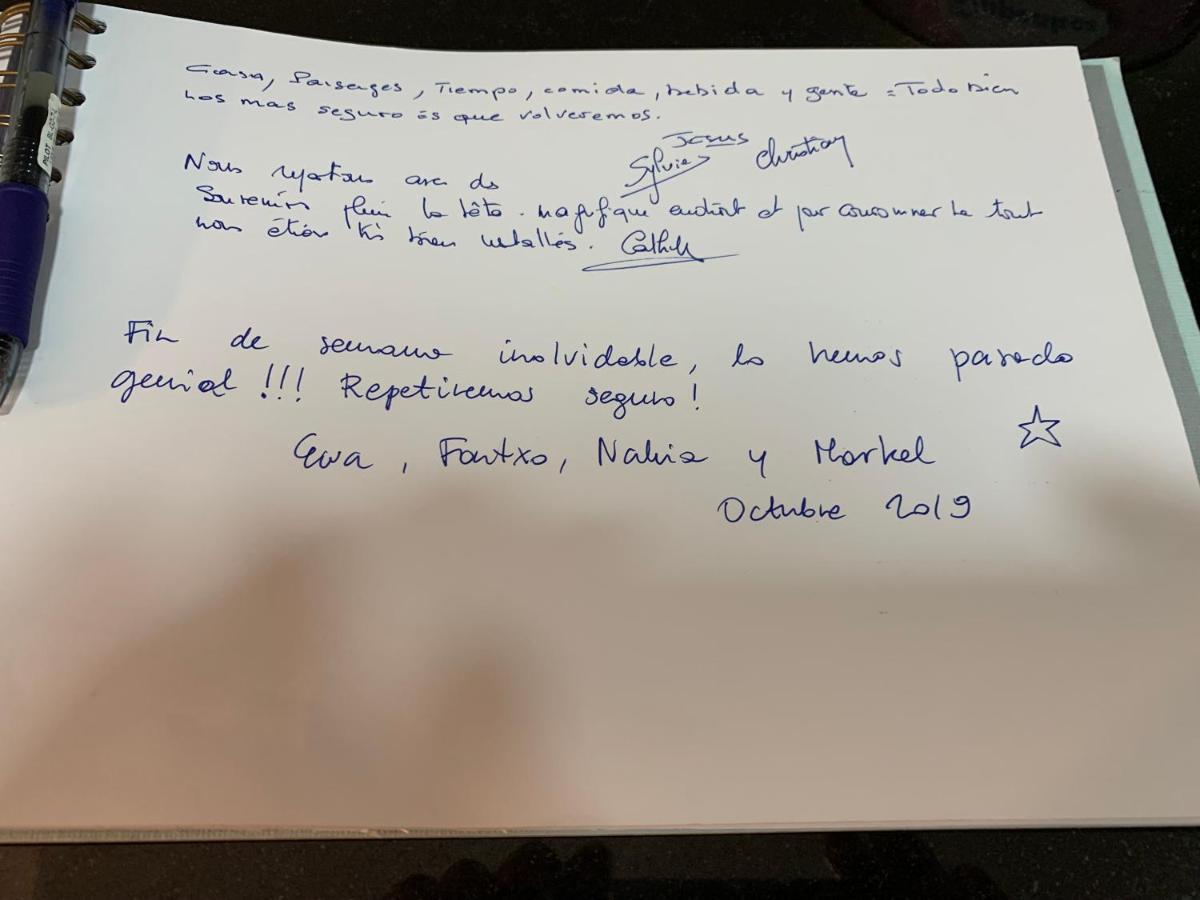 Casa, Paisages, Tiempo, comida, bebida y gente = Todo bien
Los mas seguro es que volveremos.
Jesus
Sylvie Christian
Nous repartons avec des
Souvenirs plein la tête. magnifique endroit et par couronner le tout
nous étions très bien installés.
Fin de semana inolvidable, lo hemos pasado
genial!!! Repetiremos seguro!
Ewa, Fontxo, Nahia y Markel
Octubre 2019
PILOT